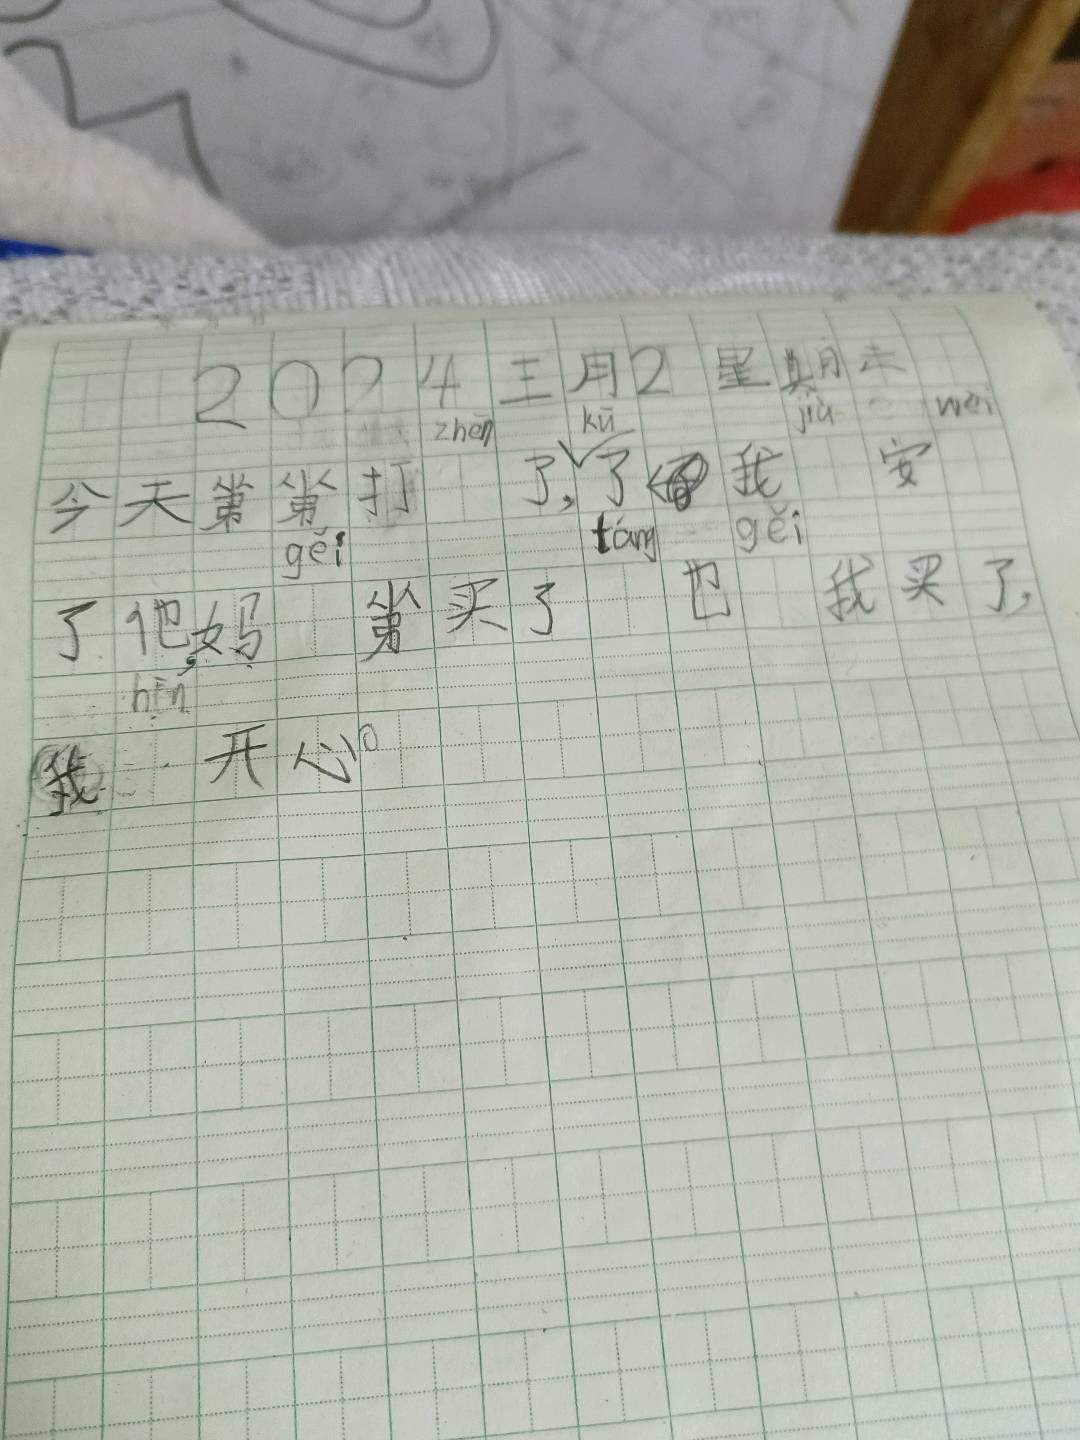 2024三月2 星期六
zhēn kū jiù wèi
今天第第打 了,了 我 安
gěi táng gěi
了他,妈 第买了 也 我买了,
hěn
我 开心。